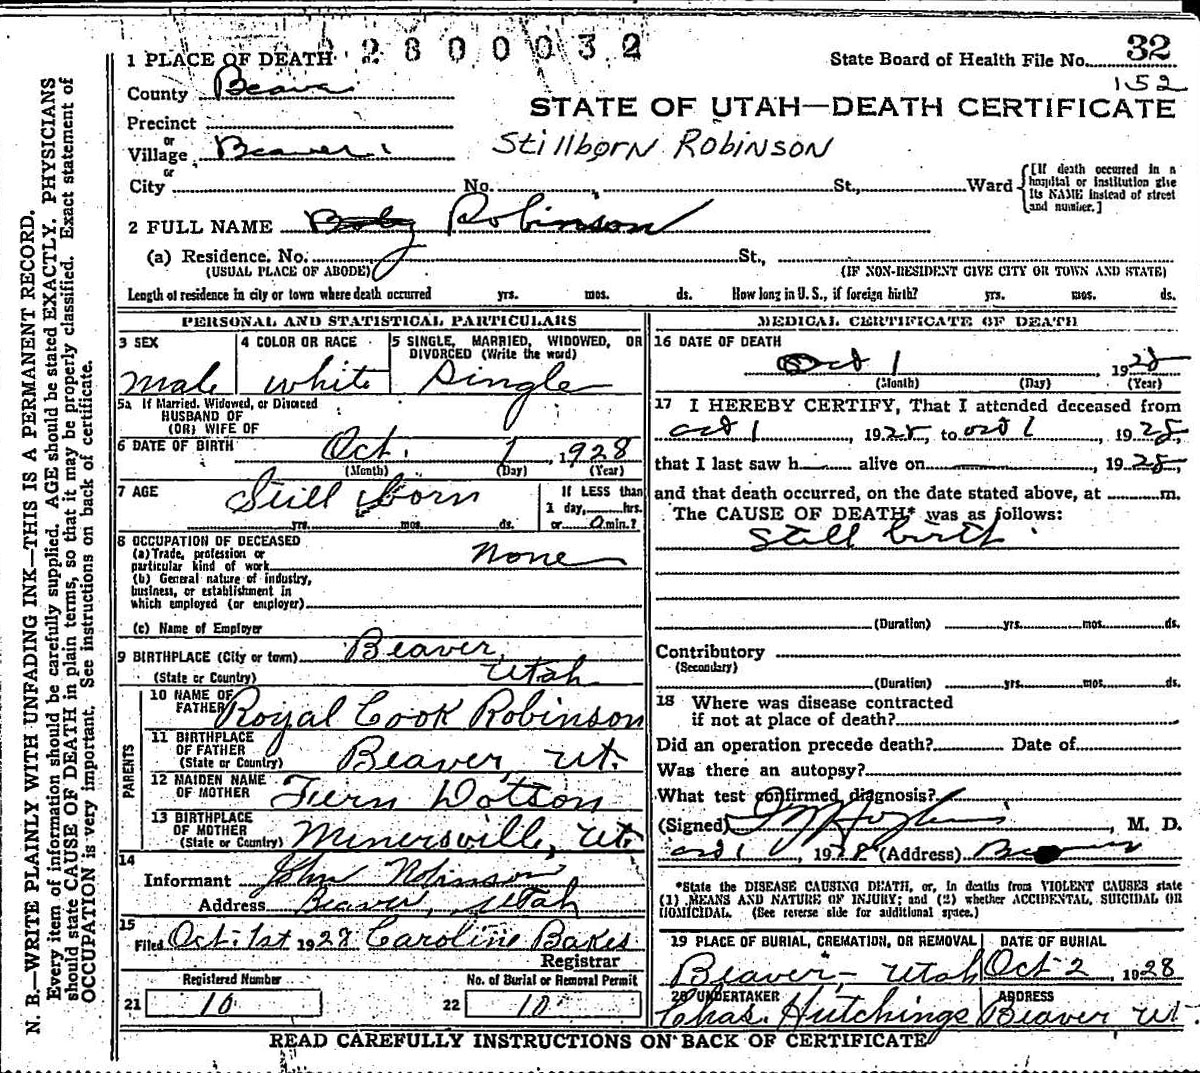 2800032
1 PLACE OF DEATH
State Board of Health File No. 32
County Beaver
152
STATE OF UTAH—DEATH CERTIFICATE
Precinct
or
Village Beaver
Stillborn Robinson
or
City No. St., Ward
[If death occurred in a
hospital or institution give
its NAME instead of street
and number.]
2 FULL NAME Baby Robinson
(a) Residence. No. St.,
(USUAL PLACE OF ABODE) (IF NON-RESIDENT GIVE CITY OR TOWN AND STATE)
Length of residence in city or town where death occurred yrs. mos. ds. How long in U. S., if foreign birth? yrs. mos. ds.
PERSONAL AND STATISTICAL PARTICULARS
3 SEX 4 COLOR OR RACE 5 SINGLE, MARRIED, WIDOWED, OR
DIVORCED (Write the word)
Male White Single
5a If Married, Widowed, or Divorced
HUSBAND OF
(OR) WIFE OF
6 DATE OF BIRTH Oct. 1, 1928
(Month) (Day) (Year)
7 AGE Still born
If LESS than
1 day, hrs.
yrs. mos. ds. or 0 min.?
8 OCCUPATION OF DECEASED
(a) Trade, profession or
particular kind of work None
(b) General nature of industry,
business, or establishment in
which employed (or employer)
(c) Name of Employer
9 BIRTHPLACE (City or town) Beaver,
(State or Country) Utah
PARENTS
10 NAME OF
FATHER Royal Cook Robinson
11 BIRTHPLACE
OF FATHER
(State or Country) Beaver, Ut.
12 MAIDEN NAME
OF MOTHER Fern Dotson
13 BIRTHPLACE
OF MOTHER
(State or Country) Minersville, Ut.
14
Informant John Robinson
Address Beaver, Utah
15
Filed Oct. 1st 1928 Caroline Bakes
Registrar
Registered Number No. of Burial or Removal Permit
21 10 22 10
MEDICAL CERTIFICATE OF DEATH
16 DATE OF DEATH
Oct 1 1928
(Month) (Day) (Year)
17 I HEREBY CERTIFY, That I attended deceased from
Oct 1, 1928, to Oct 1, 1928,
that I last saw h alive on , 1928,
and that death occurred, on the date stated above, at m.
The CAUSE OF DEATH* was as follows:
Still birth
(Duration) yrs. mos. ds.
Contributory
(Secondary)
(Duration) yrs. mos. ds.
18 Where was disease contracted
if not at place of death?
Did an operation precede death? Date of
Was there an autopsy?
What test confirmed diagnosis?
(Signed) , M. D.
Oct 1, 1928 (Address) Beaver
*State the DISEASE CAUSING DEATH, or, in deaths from VIOLENT CAUSES state
(1) MEANS AND NATURE OF INJURY; and (2) whether ACCIDENTAL, SUICIDAL OR
HOMICIDAL. (See reverse side for additional space.)
19 PLACE OF BURIAL, CREMATION, OR REMOVAL DATE OF BURIAL
Beaver - Utah Oct 2, 1928
20 UNDERTAKER ADDRESS
Chas. Hutchings Beaver Ut.
READ CAREFULLY INSTRUCTIONS ON BACK OF CERTIFICATE
N. B.—WRITE PLAINLY WITH UNFADING INK—THIS IS A PERMANENT RECORD.
Every item of information should be carefully supplied. AGE should be stated EXACTLY. PHYSICIANS
should state CAUSE OF DEATH in plain terms, so that it may be properly classified. Exact statement of
OCCUPATION is very important. See instructions on back of certificate.